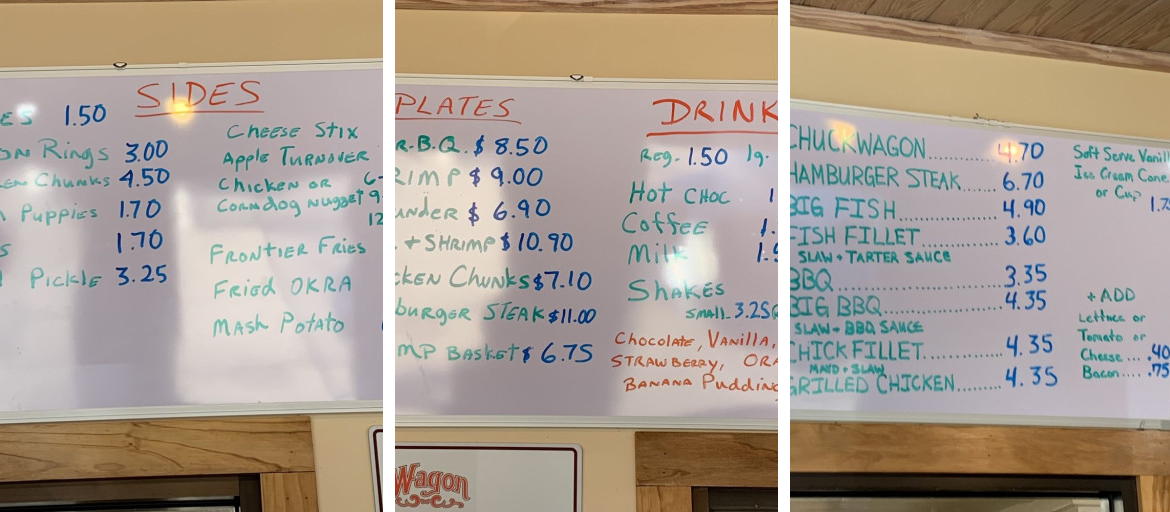 SIDES
1.50
Rings 3.00
Chunks 4.50
Puppies 1.70
1.70
Pickle 3.25
Cheese Stix
Apple Turnover
Chicken or
Corndog nugget
Frontier Fries
Fried OKRA
Mash Potato
PLATES
B.Q. $ 8.50
$ 9.00
$ 6.90
+ SHRIMP $ 10.90
Chunks $7.10
STEAK $11.00
Basket $ 6.75
Wagon
DRINK
Reg. 1.50 lg.
Hot CHOC
Coffee
Milk
Shakes
Small 3.25
Chocolate, Vanilla,
STRAWBERRY,
BANANA Pudding
CHUCKWAGON............ 4.70
HAMBURGER STEAK...... 6.70
BIG FISH.................. 4.90
FISH FILLET............. 3.60
SLAW + TARTER SAUCE
BBQ........................ 3.35
BIG BBQ.................. 4.35
SLAW + BBQ SAUCE
CHICK FILLET............ 4.35
MAYO + SLAW
GRILLED CHICKEN....... 4.35
Soft Serve
Ice Cream Cone
or Cup
+ ADD
Lettuce or
Tomato or
Cheese .... .40
Bacon ..... .75